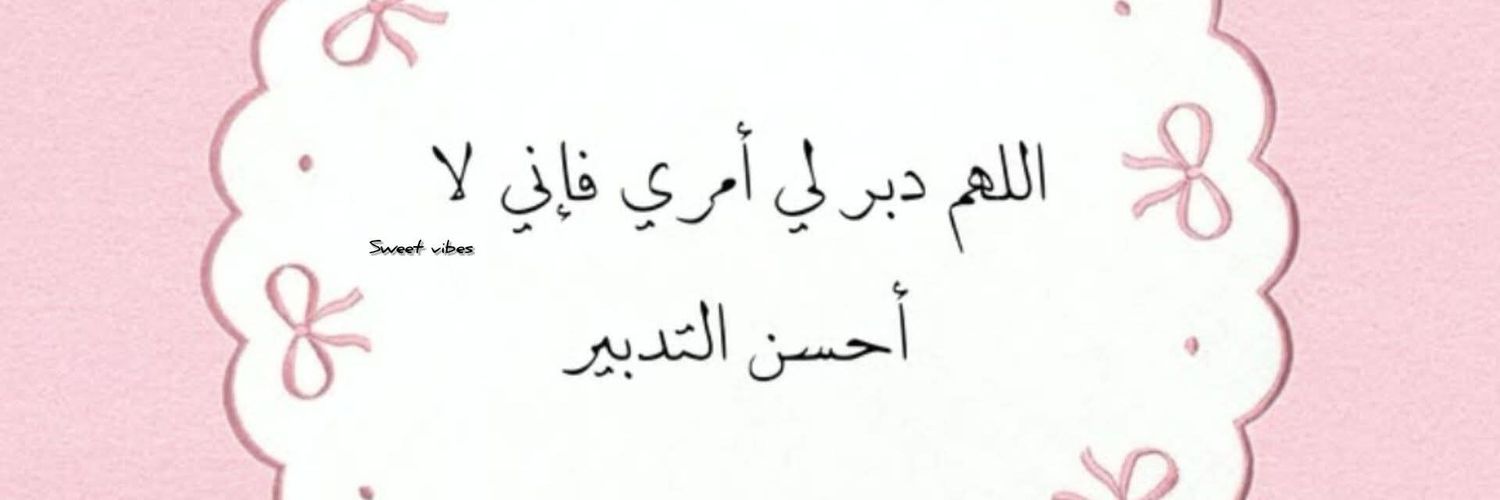 اللهم دبر لي أمري فإني لا
Sweet vibes
أحسن التدبير